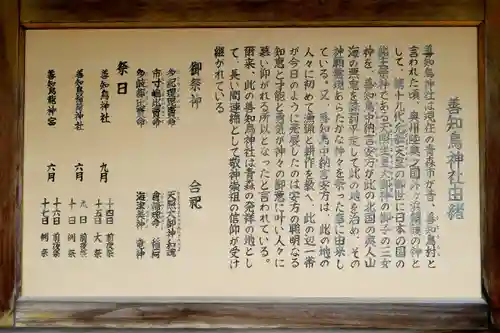 善知鳥神社由緒
善知鳥神社は現在の青森市が昔、善知鳥村と
言われた頃、奥州陸奥之国外ヶ浜鎮護の神と
して、第十九代允恭天皇の御世に日本の国の
総主祭神である天照坐皇大御神の御子の三女
神を、善知鳥中納言安方が此の北国の夷人山
海の悪鬼を誅罰平定して此の地を治め、その
神願霊現あらたかな神々を祭った事に由来し
ている。又、善知鳥中納言安方は、此の地の
人々に初めて漁猟と耕作を教へ、此の辺一帯
が今日のように発展したのは安方の聡明なる
知恵と才能と勇気が神々の御意に叶い人々に
慕い仰がれる所以となったと言われている。
爾来、此の善知鳥神社は青森の発祥の地とし
て、長い間連綿として敬神崇祖の信仰が受け
継がれている
御祭神 合祀
多紀理毘売命 天照大御神和魂
市寸嶋比売命 倉稲魂命 稲荷
多岐都比売命 海津見神 竜神
祭日
善知鳥神社 九月 十四日 前夜祭
十五日 大祭
善知鳥稲荷神社 六月 九日 前夜祭
十日 例祭
善知鳥龍神宮 六月 十六日 前夜祭
十七日 例祭